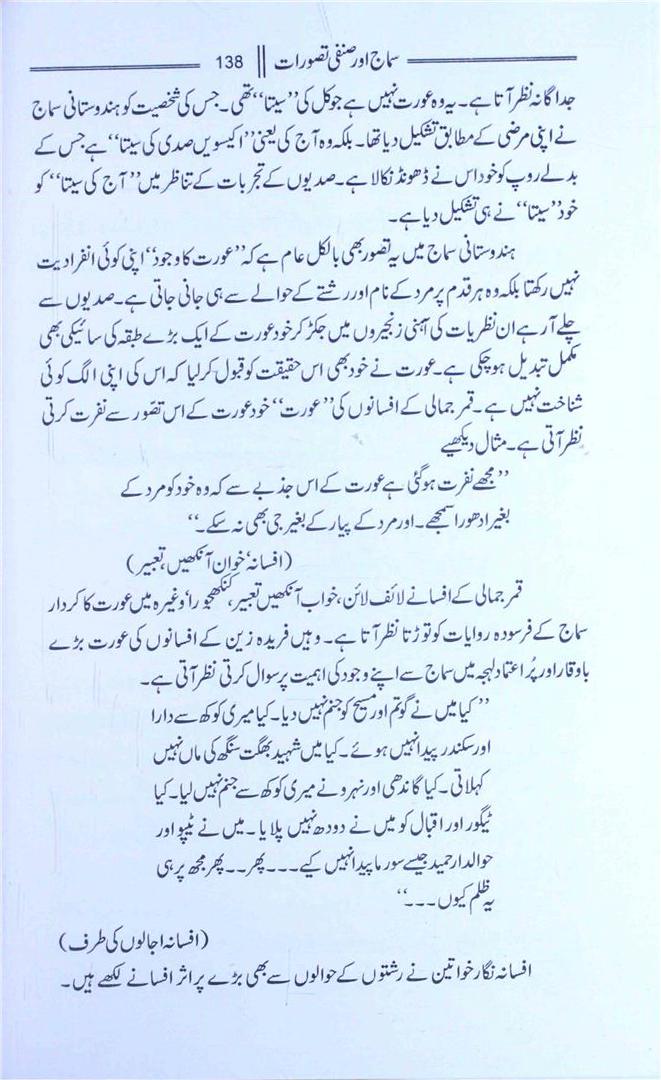 سماج اور صنفی تصورات || 138
جداگانہ نظر آتا ہے۔ یہ وہ عورت نہیں ہے جو کل کی ’’سیتا‘‘ تھی۔ جس کی شخصیت کو ہندوستانی سماج
نے اپنی مرضی کے مطابق تشکیل دیا تھا۔ بلکہ وہ آج کی یعنی ’’اکیسویں صدی کی سیتا‘‘ ہے جس کے
بدلے روپ کو خود اس نے ڈھونڈ نکالا ہے۔ صدیوں کے تجربات کے تناظر میں ’’آج کی سیتا‘‘ کو
خود ’’سیتا‘‘ نے ہی تشکیل دیا ہے۔
ہندوستانی سماج میں یہ تصور بھی بالکل عام ہے کہ ’’عورت کا وجود‘‘ اپنی کوئی انفرادیت
نہیں رکھتا بلکہ وہ ہر قدم پر مرد کے نام اور رشتے کے حوالے سے ہی جانی جاتی ہے۔ صدیوں سے
چلے آرہے ان نظریات کی آہنی زنجیروں میں جکڑ کر خود عورت کے ایک بڑے طبقہ کی سائیکی بھی
مکمل تبدیل ہوچکی ہے۔ عورت نے خود بھی اس حقیقت کو قبول کرلیا کہ اس کی اپنی الگ کوئی
شناخت نہیں ہے۔ قمر جمالی کے افسانوں کی ’’عورت‘‘ خود عورت کے اس تصّور سے نفرت کرتی
نظر آتی ہے۔ مثال دیکھیے
’’مجھے نفرت ہوگئی ہے عورت کے اس جذبے سے کہ وہ خود کو مرد کے
بغیر ادھورا سمجھے۔ اور مرد کے پیار کے بغیر جی بھی نہ سکے۔‘‘
(افسانہ ’خوان آنکھیں، تعبیر)
قمر جمالی کے افسانے لائف لائن، خواب آنکھیں تعبیر، کنکھجورا، وغیرہ میں عورت کا کردار
سماج کے فرسودہ روایات کو توڑتا نظر آتا ہے۔ وہیں فریدہ زین کے افسانوں کی عورت بڑے
باوقار اور پُراعتماد لہجہ میں سماج سے اپنے وجود کی اہمیت پر سوال کرتی نظر آتی ہے۔
’’کیا میں نے گوتم اور مسیح کو جنم نہیں دیا۔ کیا میری کوکھ سے دارا
اور سکندر پیدا نہیں ہوئے۔ کیا میں شہید بھگت سنگھ کی ماں نہیں
کہلاتی۔ کیا گاندھی اور نہرو نے میری کوکھ سے جنم نہیں لیا۔ کیا
ٹیگور اور اقبال کو میں نے دودھ نہیں پلایا۔ میں نے ٹیپو اور
حوالدار حمید جیسے سورما پیدا نہیں کیے۔۔۔۔ پھر۔۔ پھر مجھ پر ہی
یہ ظلم کیوں۔۔۔‘‘
(افسانہ اجالوں کی طرف)
افسانہ نگار خواتین نے رشتوں کے حوالوں سے بھی بڑے پر اثر افسانے لکھے ہیں۔